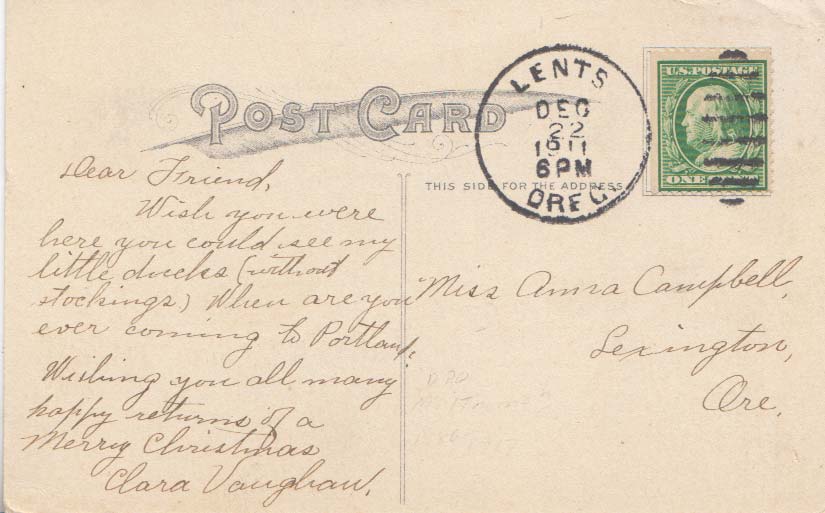 POST CARD
THIS SIDE FOR THE ADDRESS
LENTS
DEC
22
1911
6 PM
OREG.
U.S. POSTAGE
ONE CENT
Dear Friend,
Wish you were
here you could see my
little ducks (without
stockings.) When are you
ever coming to Portland?
Wishing you all many
happy returns of a
Merry Christmas
Clara Vaughan.
Miss Anna Campbell,
Lexington,
Ore.